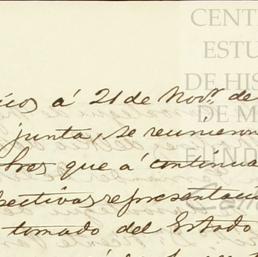 CENT
ESTU
DE HIS
DE M
FUND
icos á 21 de Novre. de
junta, se reunieron
bres que á continua
pectivas representaci
tomado del Estado